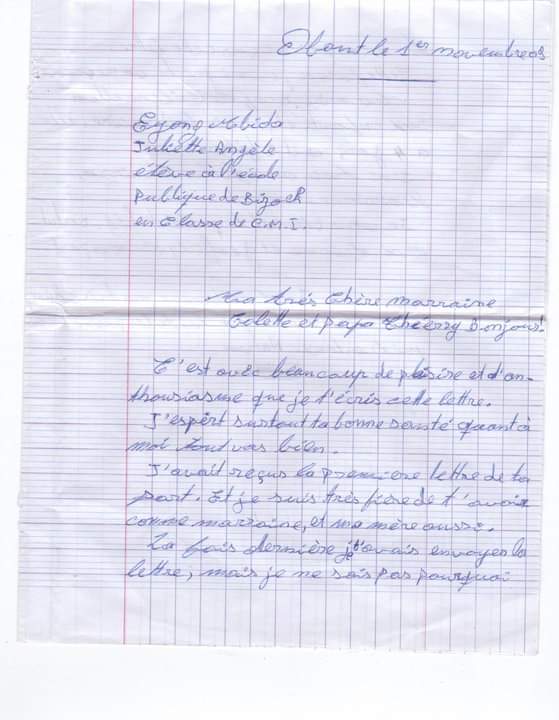 Obout le 1er novembre 03
Eyong Mbida
Juliette Angèle
élève à l'école
Publique de Bizock
en Classe de C.M.I.
Ma très Chère marraine
Colette et papa Thièrry Bonjour!
C'est avec beaucoup de plaisire et d'an-
thousiasme que je t'écris cette lettre.
J'espèrt surtout ta bonne santé quant à
moi tout vas bien.
J'avait reçus la première lettre de ta
part. Et je suis très fière de t'avoir
comme marraine, et ma mère aussi.
La fois dernière je t'avais envoyer la
lettre, mais je ne sais pas pourquoi